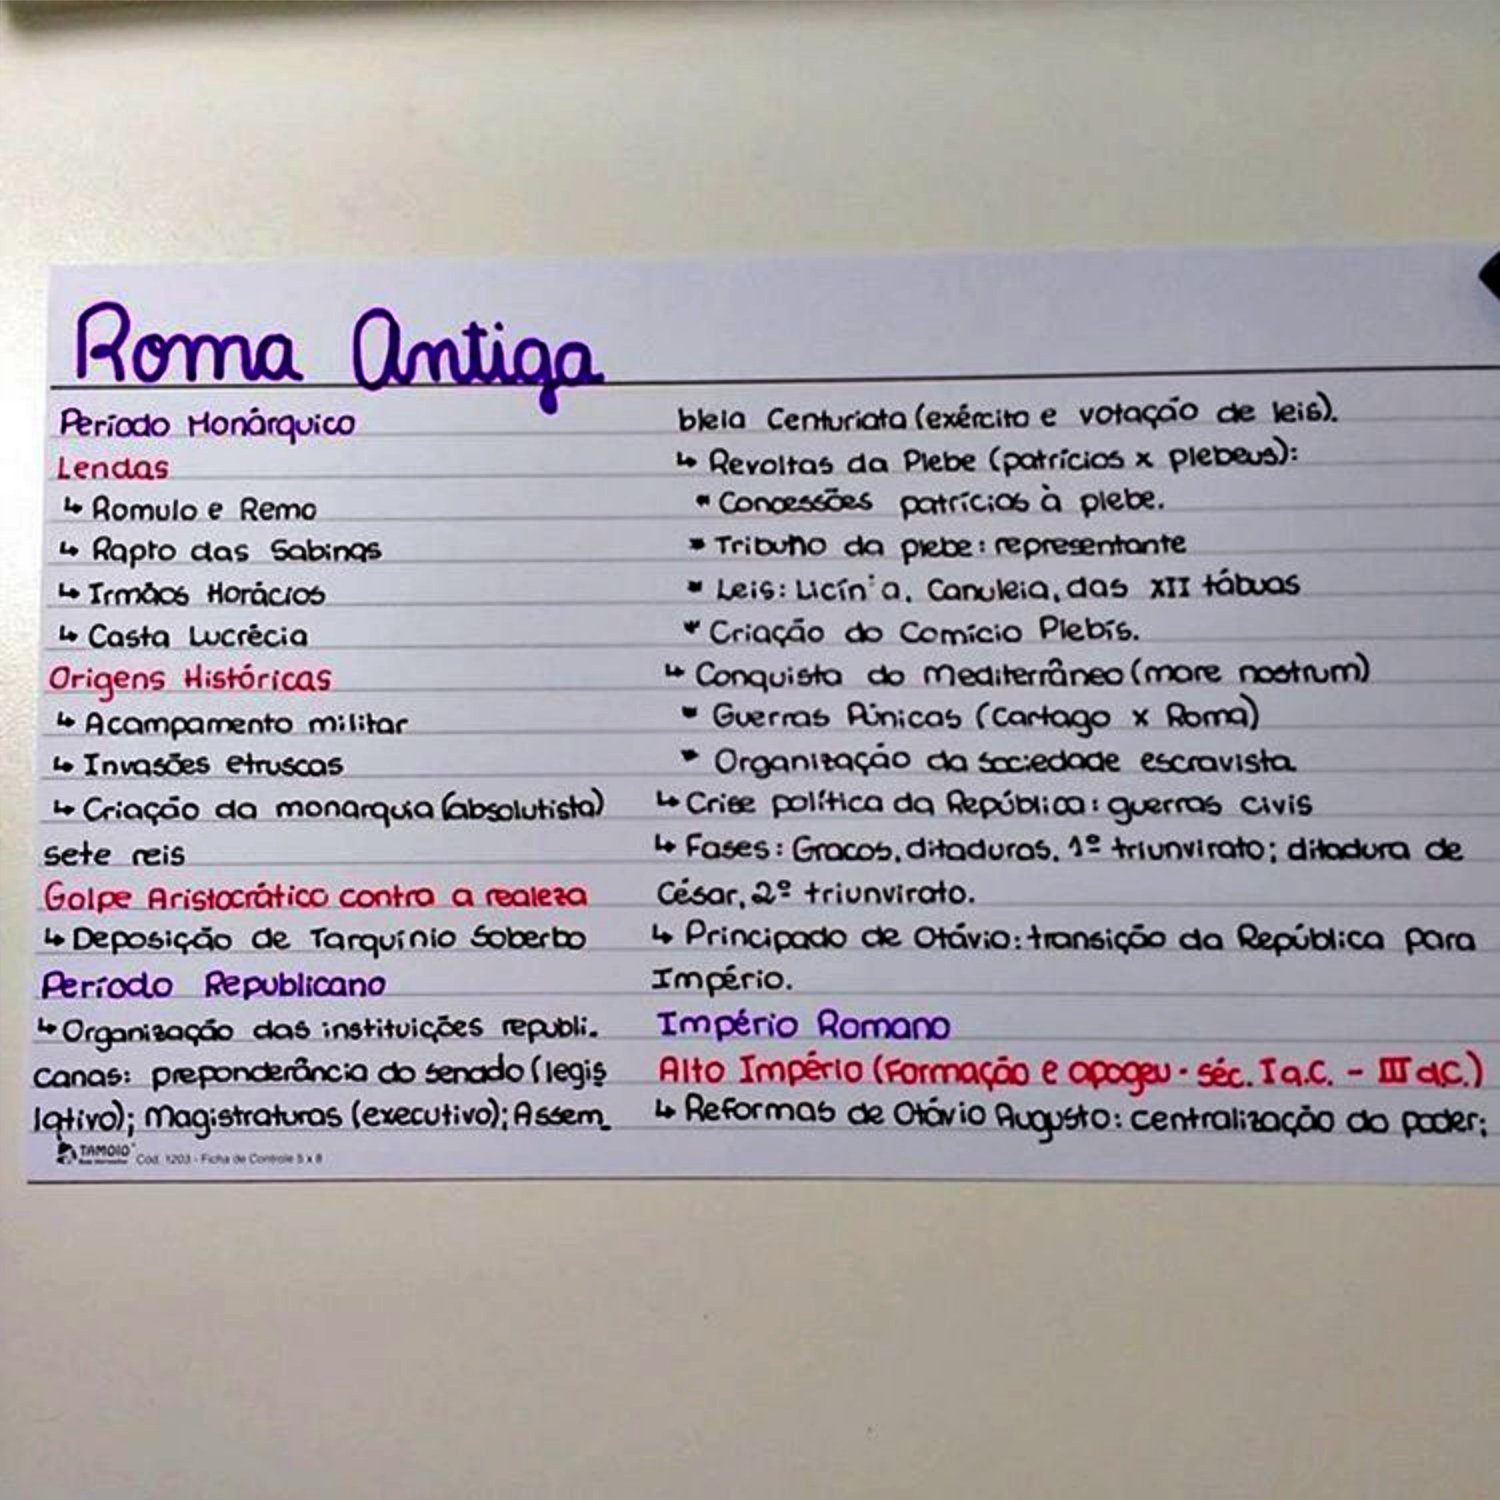 Roma Antiga
Período Monárquico
Lendas
↳ Romulo e Remo
↳ Rapto das Sabinas
↳ Irmãos Horácios
↳ Casta Lucrécia
Origens Históricas
↳ Acampamento militar
↳ Invasões etruscas
↳ Criação da monarquia (absolutista)
sete reis
Golpe Aristocrático contra a realeza
↳ Deposição de Tarquínio Soberbo
Período Republicano
↳ Organização das instituições republi.
canas: preponderância do senado (legis
lativo); Magistraturas (executivo); Assem_
TAMOIO
Cód. 1203 - Ficha de Controle 5 x 8
bleia Centuriata (exército e votação de leis).
↳ Revoltas da Plebe (patrícios x plebeus):
Concessões patrícias à plebe.
Tribuno da plebe: representante
Leis: Licín'a, Canuleia, das XII tábuas
Criação do Comício Plebis.
↳ Conquista do Mediterrâneo (mare nostrum)
Guerras Púnicas (Cartago x Roma)
Organização da sociedade escravista
↳ Crise política da República: guerras civis
↳ Fases: Gracos, ditaduras, 1º triunvirato; ditadura de
César, 2º triunvirato.
↳ Principado de Otávio: transição da República para
Império.
Império Romano
Alto Império (Formação e apogeu - séc. I a.C. - III d.C.)
↳ Reformas de Otávio Augusto: centralização do poder;